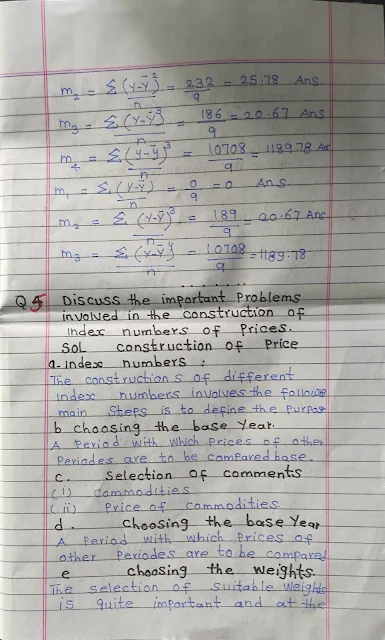 m₂ = Σ(y-ȳ)²/n = 232/9 = 25.78 Ans
m₃ = Σ(y-ȳ)³/n = 186/9 = 20.67 Ans
m₄ = Σ(y-ȳ)³/n = 10708/9 = 1189.78 As
m₁ = Σ(y-ȳ)/n = 0/9 = 0 Ans
m₂ = Σ(y-ȳ)³/n = 189/9 = 20.67 Ans
m₃ = Σ(y-ȳ)⁴/n = 10708/9 = 1189.78
Q5 Discuss the important Problems
involved in the construction of
index numbers of Prices.
SOL construction of Price
a. index numbers :
The constructions of different
index numbers involves the followe
main steps is to define the Purpos
b choosing the base Year.
A Period with which Prices of other
Periodes are to be compared base.
c. selection of comments
(i) commodities
(ii) Price of commodities.
d. choosing the base Year
A Period with which Prices of
other Periodes are to be compared
e choosing the weights.
The selection of suitable weights
is quite important and at the